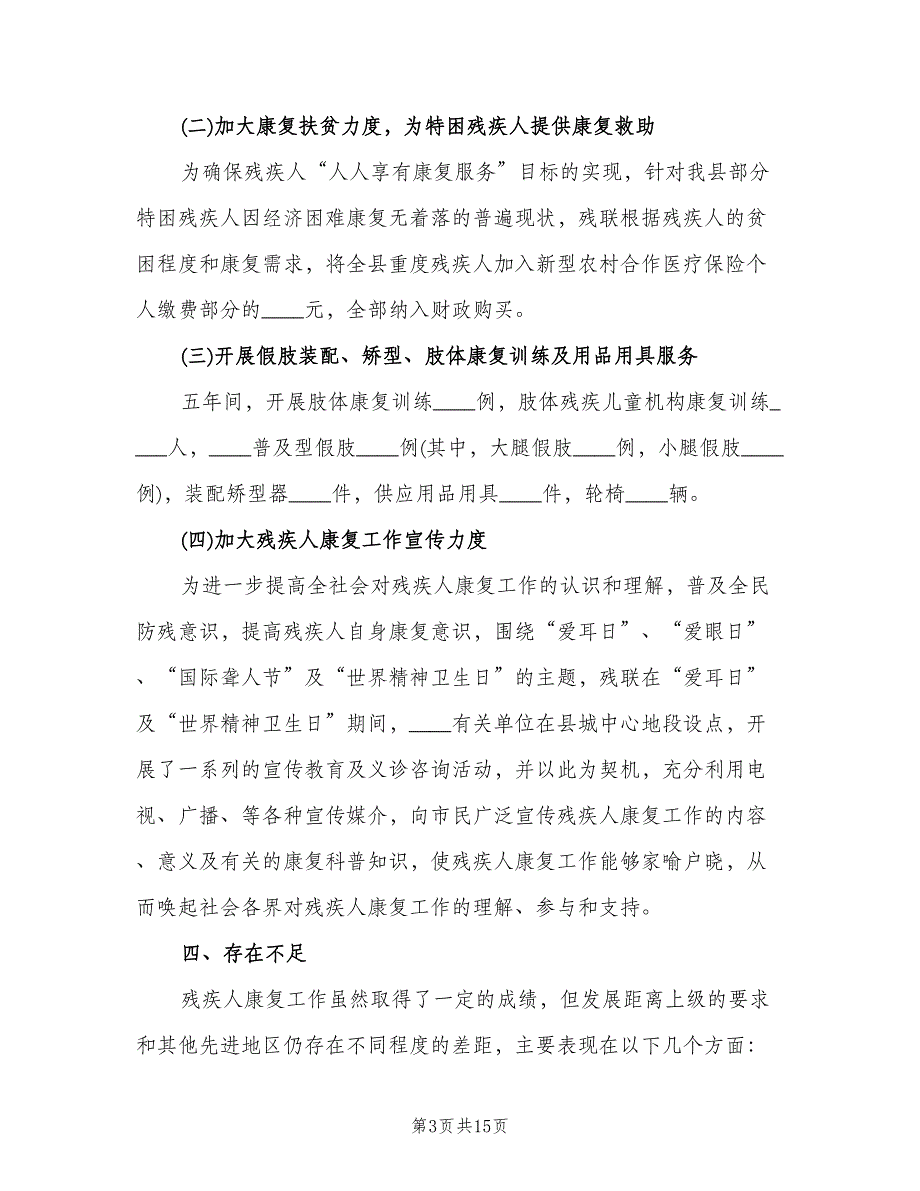 (二)加大康复扶贫力度，为特困残疾人提供康复救助
为确保残疾人“人人享有康复服务”目标的实现，针对我县部分
特困残疾人因经济困难康复无着落的普遍现状，残联根据残疾人的贫
困程度和康复需求，将全县重度残疾人加入新型农村合作医疗保险个
人缴费部分的____元，全部纳入财政购买。
(三)开展假肢装配、矫型、肢体康复训练及用品用具服务
五年间，开展肢体康复训练____例，肢体残疾儿童机构康复训练_
___人，____普及型假肢____例(其中，大腿假肢____例，小腿假肢____
例)，装配矫型器____件，供应用品用具____件，轮椅____辆。
(四)加大残疾人康复工作宣传力度
为进一步提高全社会对残疾人康复工作的认识和理解，普及全民
防残意识，提高残疾人自身康复意识，围绕“爱耳日”、“爱眼日”
、“国际聋人节”及“世界精神卫生日”的主题，残联在“爱耳日”
及“世界精神卫生日”期间，____有关单位在县城中心地段设点，开
展了一系列的宣传教育及义诊咨询活动，并以此为契机，充分利用电
视、广播、等各种宣传媒介，向市民广泛宣传残疾人康复工作的内容
、意义及有关的康复科普知识，使残疾人康复工作能够家喻户晓，从
而唤起社会各界对残疾人康复工作的理解、参与和支持。
四、存在不足
残疾人康复工作虽然取得了一定的成绩，但发展距离上级的要求
和其他先进地区仍存在不同程度的差距，主要表现在以下几个方面：
第3页共15页